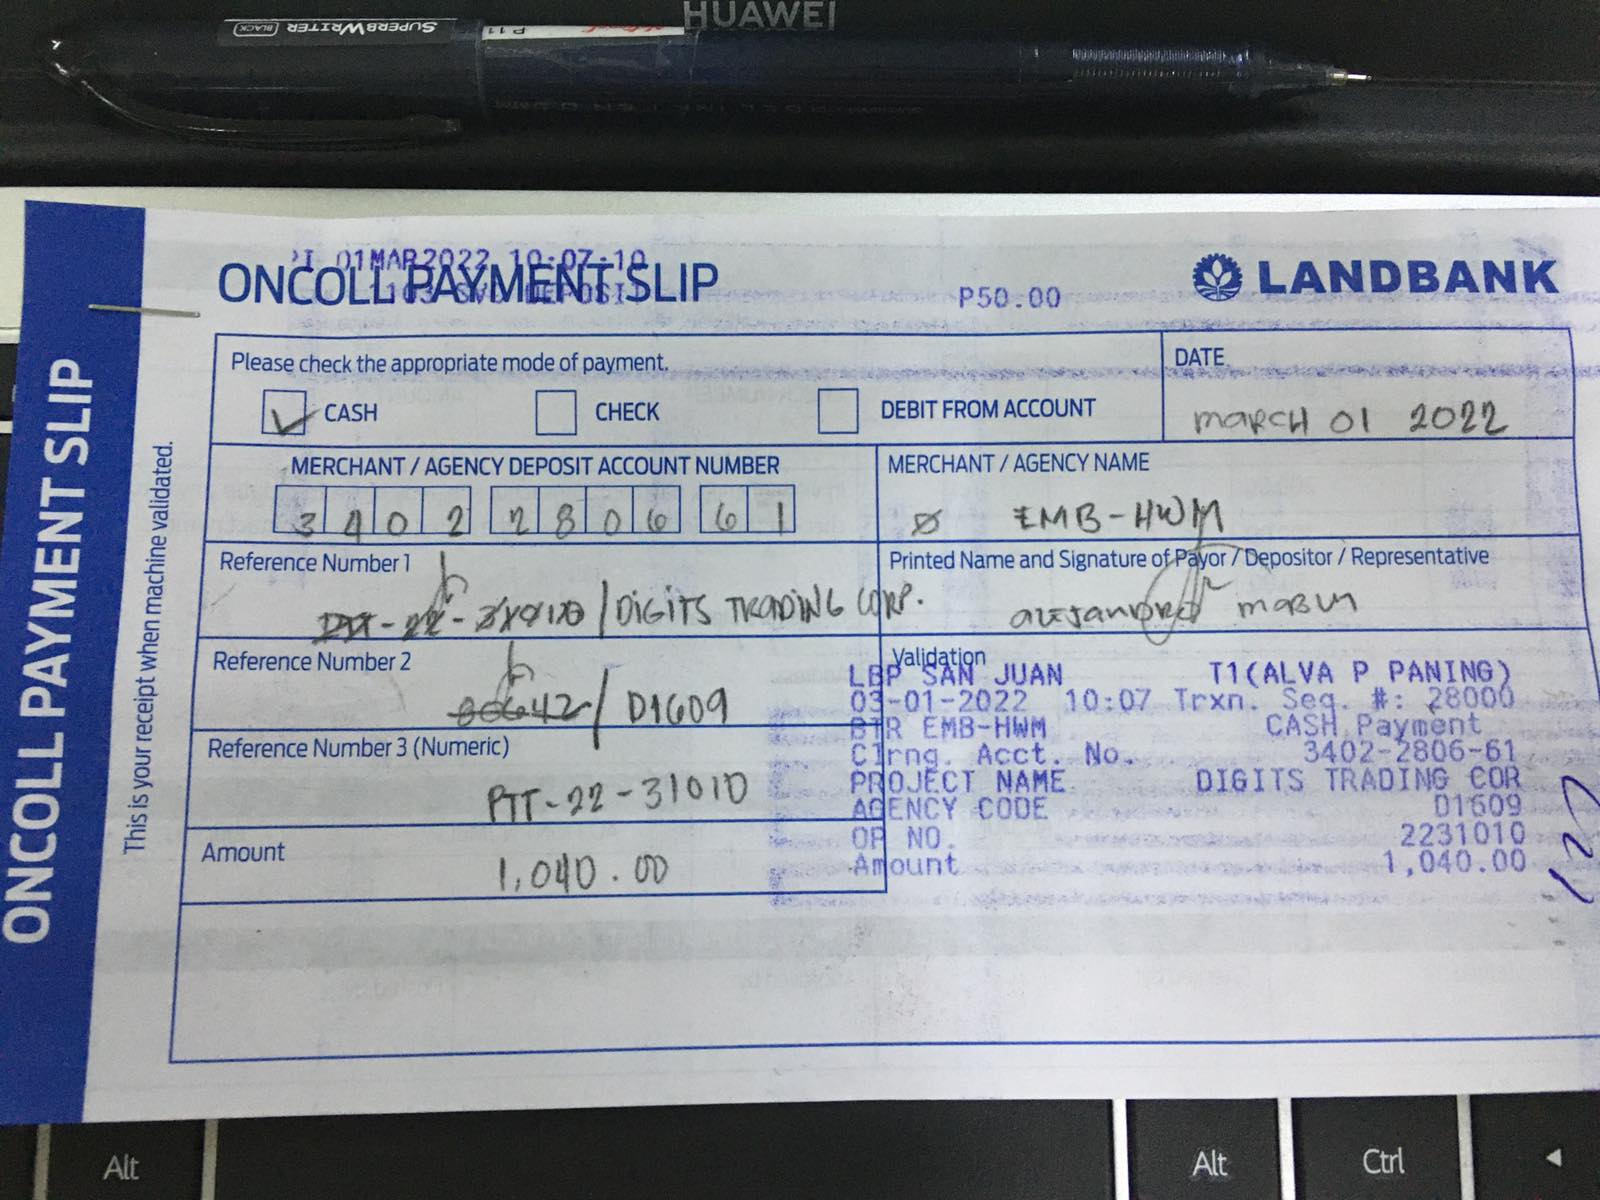 HUAWEI
SUPERBWRITER BLACK
ONCOLL PAYMENT SLIP
This is your receipt when machine validated.
01MAR2022 10:07:10
ONCOLL PAYMENT SLIP
P50.00
LANDBANK
Please check the appropriate mode of payment.
CASH
CHECK
DEBIT FROM ACCOUNT
DATE
MARCH 01 2022
MERCHANT / AGENCY DEPOSIT ACCOUNT NUMBER
3402 2806 61
MERCHANT / AGENCY NAME
EMB-HWM
Reference Number 1
/ DIGITS TRADING CORP.
Printed Name and Signature of Payor / Depositor / Representative
Reference Number 2
/ D1609
Reference Number 3 (Numeric)
PTT-22-31010
Amount
1,040.00
Validation
LBP SAN JUAN T1(ALVA P PANING)
03-01-2022 10:07 Trxn. Seq. #: 28000
BTR EMB-HWM CASH Payment
Clrng. Acct. No. 3402-2806-61
PROJECT NAME DIGITS TRADING COR
AGENCY CODE D1609
OP NO. 2231010
Amount 1,040.00
Alt
Alt
Ctrl